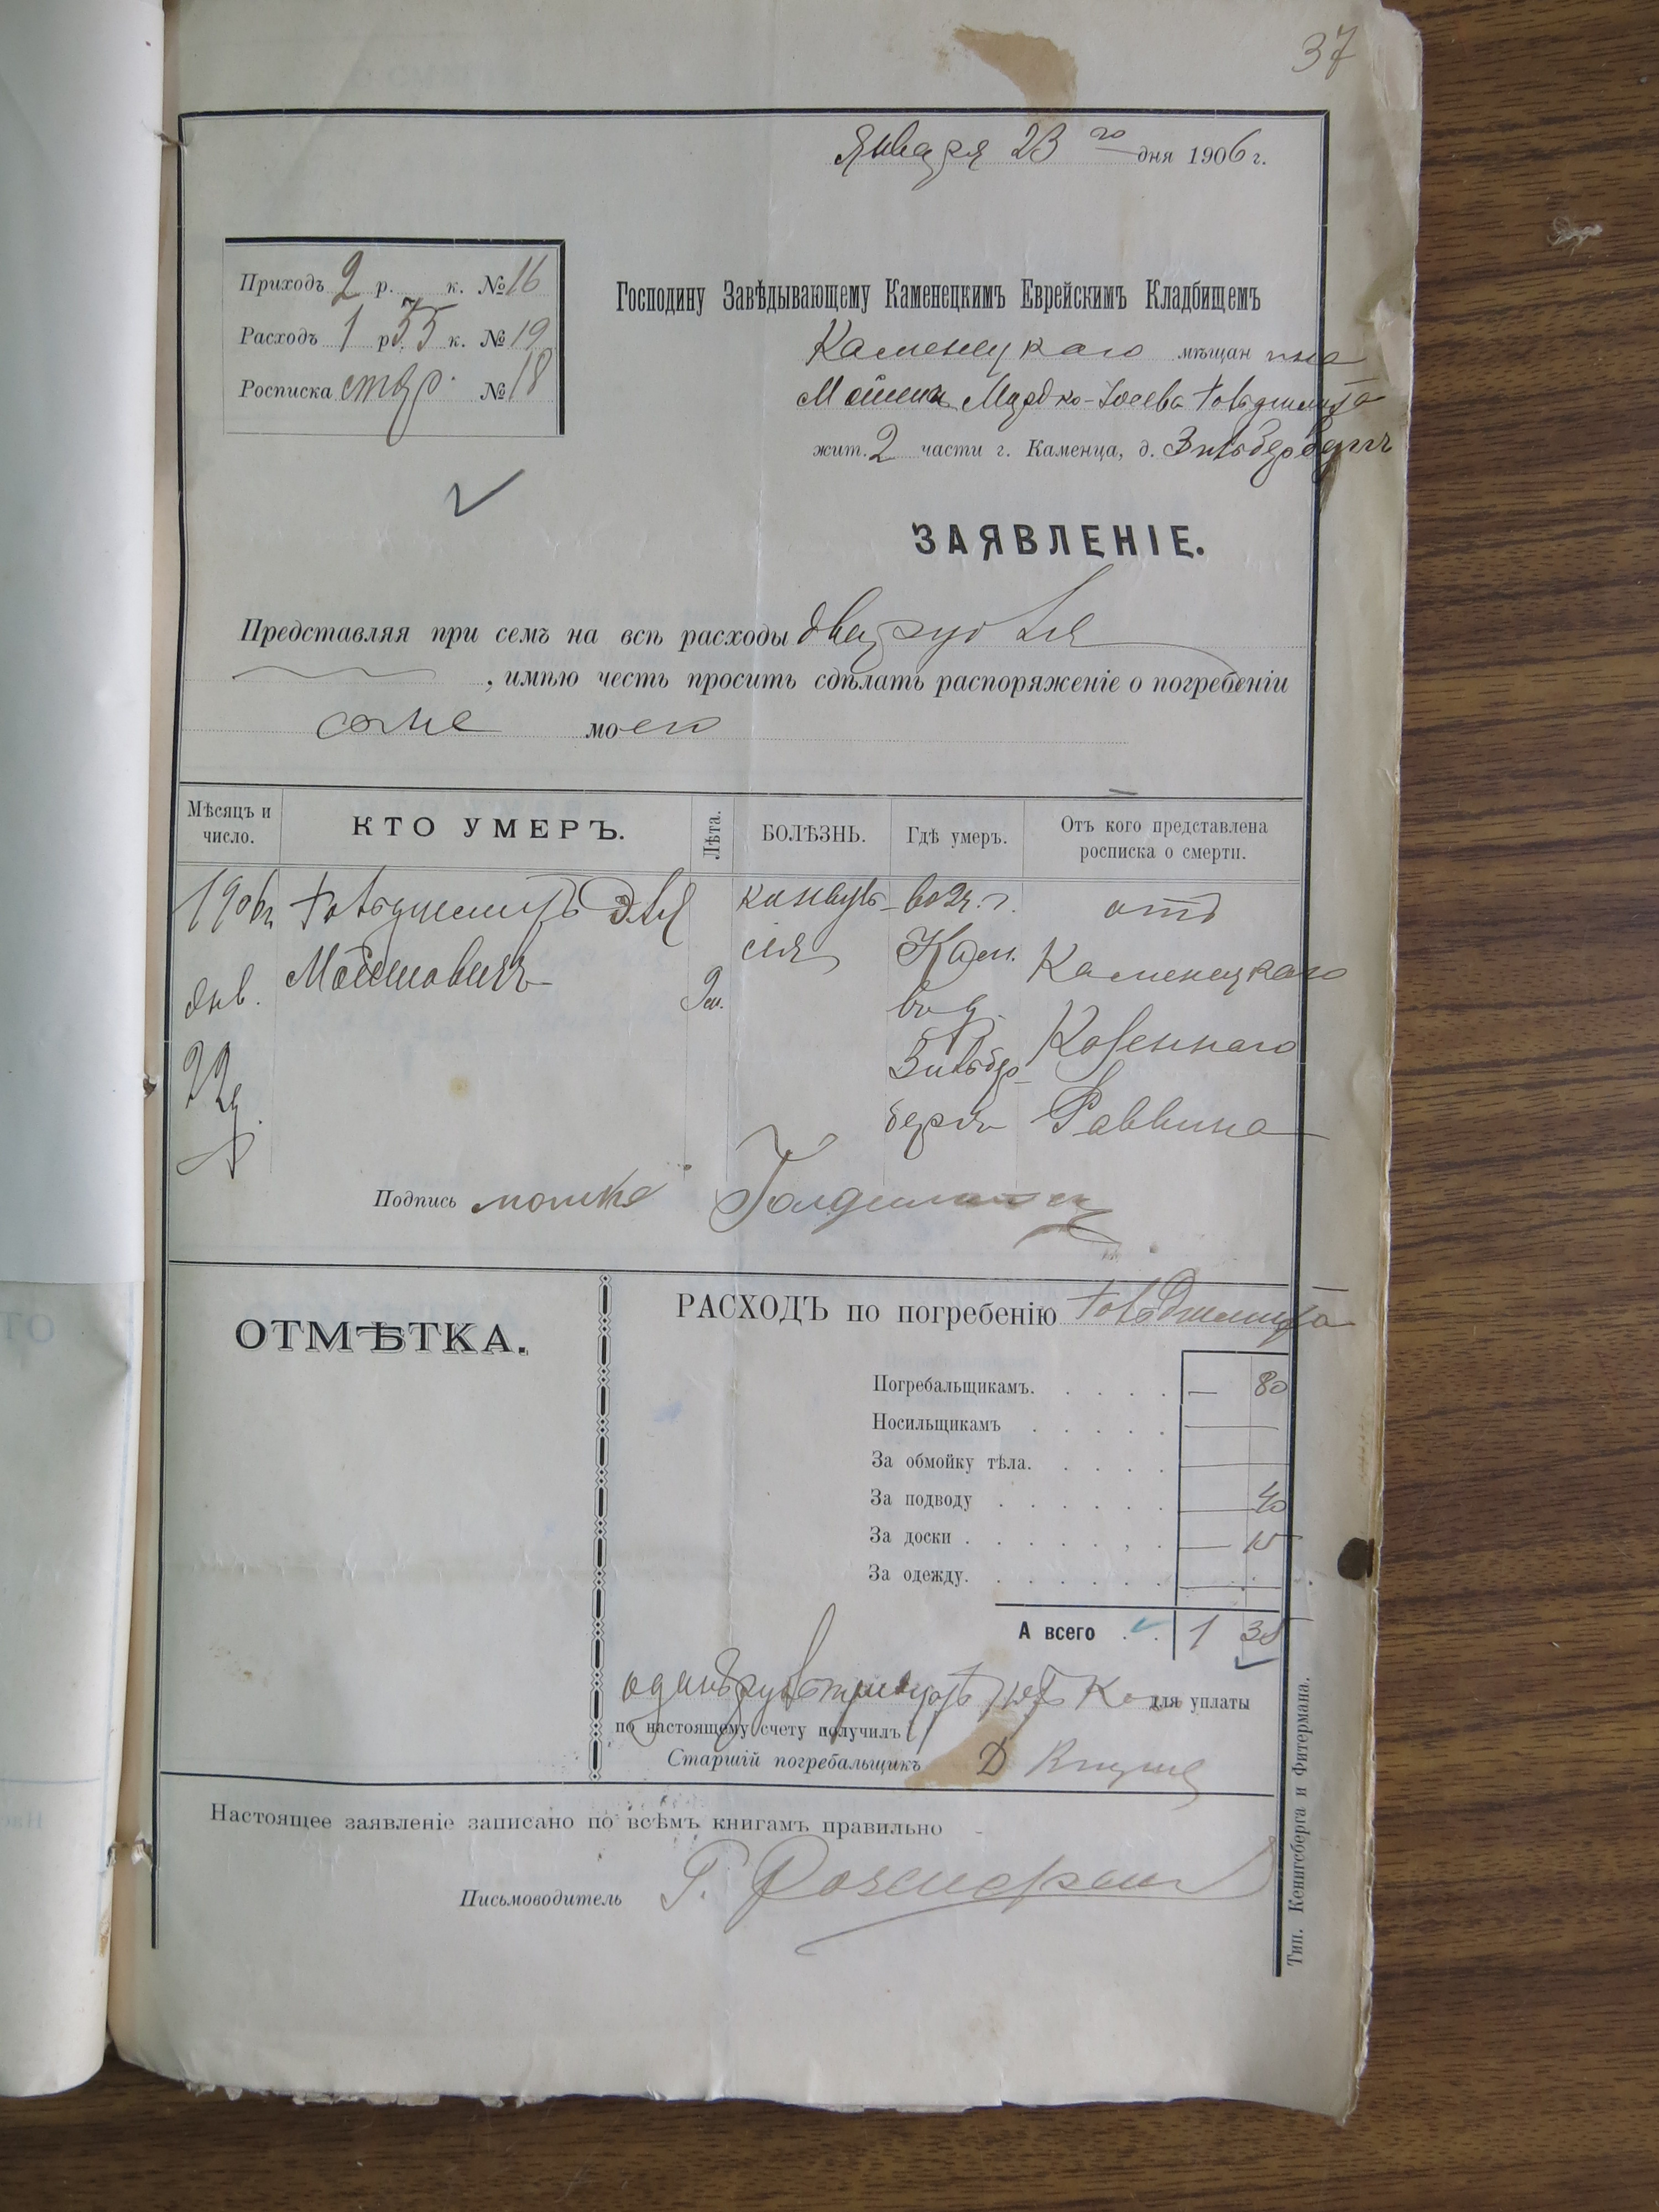 37
Января 23 го дня 1906 г.
Приходъ 2 р. к. № 16
Расходъ 1 р 35 к. № 19
Росписка стр. № 18
Господину Завѣдывающему Каменецкимъ Еврейскимъ Кладбищемъ
Каменецкаго мѣщанина
Мошка Мордко-Іосева Гольдшмидта
жит. 2 части г. Каменца, д. Зильбербергъ
ЗАЯВЛЕНІЕ.
Представляя при семъ на всѣ расходы два рубля
, имѣю честь просить сдѣлать распоряженіе о погребеніи
сына моего
Мѣсяцъ и число.
КТО УМЕРЪ.
Лѣта.
БОЛѢЗНЬ.
Гдѣ умеръ.
Отъ кого представлена росписка о смерти.
1906 г. Гольдшмидъ Эля конвуль- во 2 ч. г. отъ
Мошковичъ сія Кам. Каменецкаго
янв. 2 м. въ д. Казеннаго
22 д. Зильбер-
бергъ Раввина
Подпись
ОТМѢТКА.
РАСХОДЪ по погребенію Гольдшмидта
Погребальщикамъ. — 80
Носильщикамъ —
За обмойку тѣла.
За подводу — 40
За доски — 15
За одежду.
А всего 1 35
одинъ руб тридцать пять Коп для уплаты
по настоящему счету получилъ
Старшій погребальщикъ Д
Настоящее заявленіе записано по всѣмъ книгамъ правильно
Письмоводитель Г.
Тип. Кенигсберга и Фитермана.